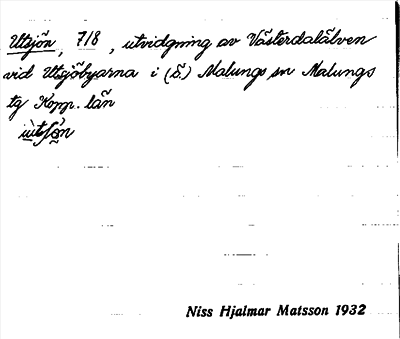 Utsjön, 718, utvidgning av Västerdalälven
vid Utsjöbyarna i (S.) Malungs sn Malungs
tg Kopp. län
Niss Hjalmar Matsson 1932